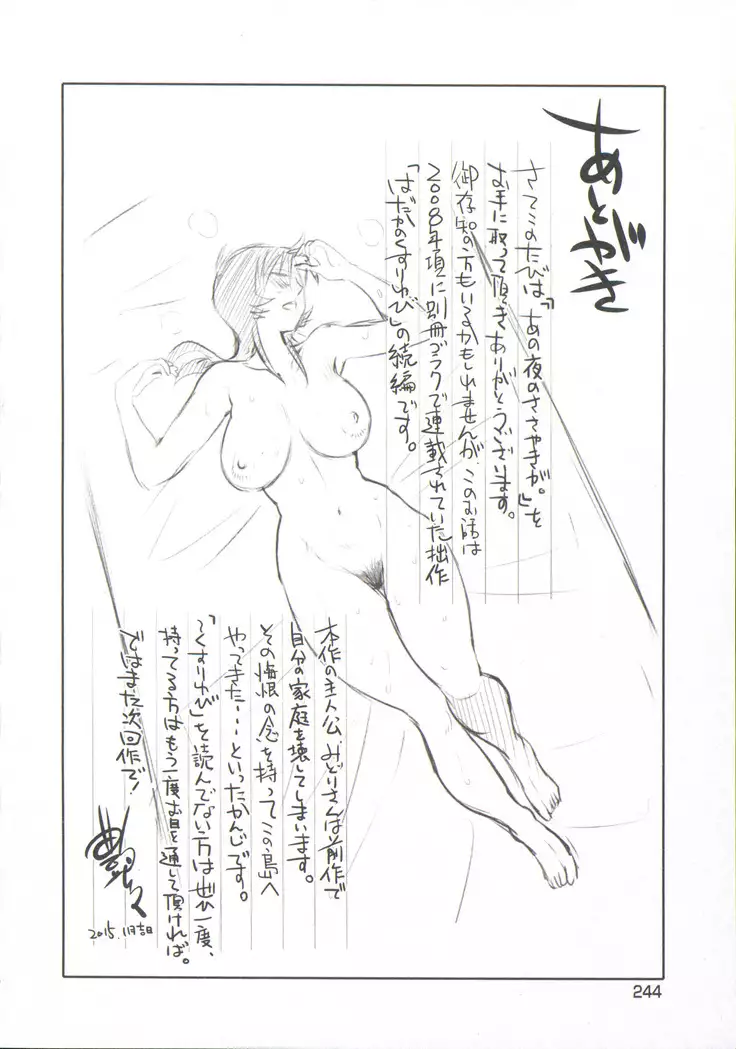 あとがき
さてこのたびは「あの夜のささやきが。」を
お手に取って頂きありがとうございます。
御存知の方もいるかもしれませんが、このお話は
2008年項に別冊ゴラクで連載されていた拙作
「はだかのくすりゆび」の続編です。
本作の主人公、みどりさんは前作で
自分の家庭を壊してしまいます。
その悔恨の念を持ってこの島へ
やってきた・・・といったかんじです。
「くすりゆび」を読んでない方はぜひ一度、
持ってる方はもう一度お目を通して頂ければ。
ではまた次回作で！
艶々
2015.11月吉日
244